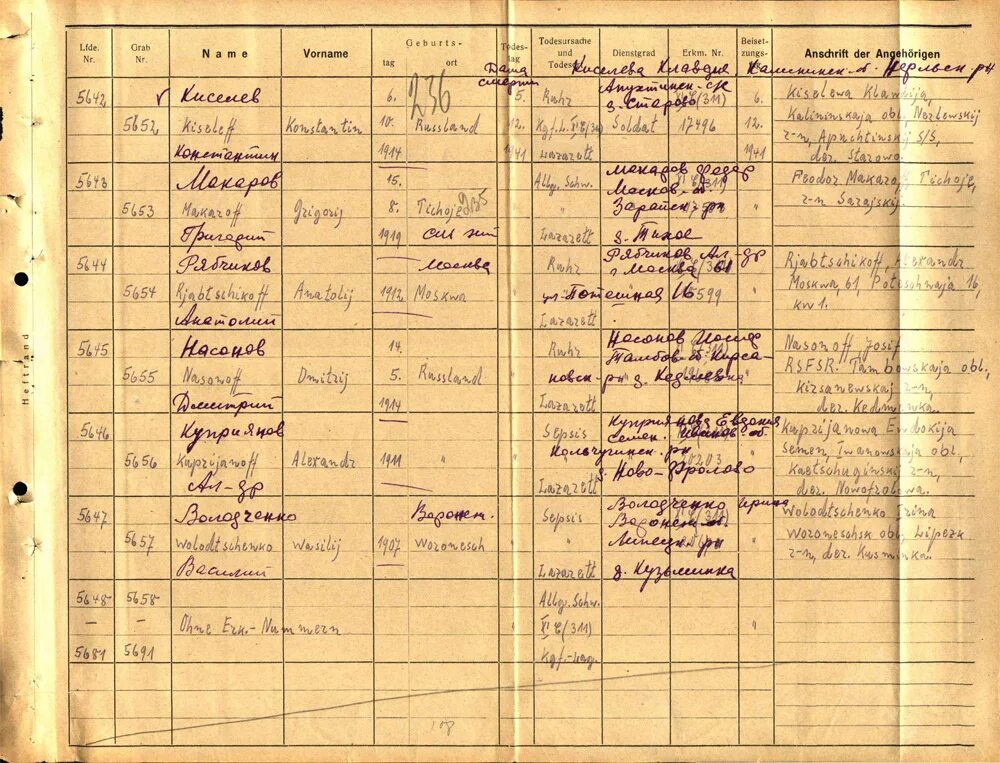 Lfde. Nr. Grab Nr. Name Vorname Geburts- tag ort Todes- tag Todesursache und Dienstgrad Erkm. Nr. Beiset- zungs- Anschrift der Angehörigen
236 Дата смерти Киселева Клавдия, Калининск. об.
5642 Киселев 6. 5. Ruhr д. Старово 6. Kiselewa Klawdija,
5652 Kiseleff Konstantin 10. Russland 12. Soldat 17496 12. Kalininskaja obl.
Константин 1914 1941 Lazarett 1941 der. Starowo.
5643 Макаров 15. Allg. Schw. Макаров Федор Feodor Makaroff, Tichoje,
Москов. об.
5653 Makaroff Grigorij 8. Tichoje " Зарайск. рн r-n Sarajskij
Григорий 1919 Lazarett д. Тихое
5644 Рябчиков Москва Ruhr Рябчиков Ал-др Rjabtschikoff, Alexandr
г. Москва
5654 Rjabtschikoff Anatolij 1912 Moskwa ул. Потешная 16 Moskwa, 61, Poteschnaja 16,
Анатолий Lazarett kw 1.
5645 Насонов 14. Ruhr Насонов Иосиф Nasonoff Josif
Тамбов. об. Кирса-
5655 Nasonoff Dmitrij 5. Russland новск. рн RSFSR. Tambowskaja obl.,
Дмитрий 1914 Lazarett Kirsanewskaj r-n,
5646 Куприянов Sepsis Куприянова Евдокия Kuprijanowa Ewdokija
Семен. Иванов. об.
5656 Kuprijanoff Alexandr 1911 " Кольчугинск. рн Semen, Iwanowskaja obl.,
Ал-др Lazarett д. Ново-Фролово
5647 Володченко Воронеж. Sepsis Володченко Ирина Wolodtschenko Irina
Воронеж. об.
5657 Wolodtschenko Wasilij 1907 Woronesch " Липецк. рн Woroneschsk obl. Lipezk
Василий Lazarett д. Кузьминка r-n, der. Kusminka.
5648 5658 Allg. Schw.
– – Ohne Erk.-Nummern " XI C/(311) "
5681 5691 Kgf.-Lag.
Heftrand